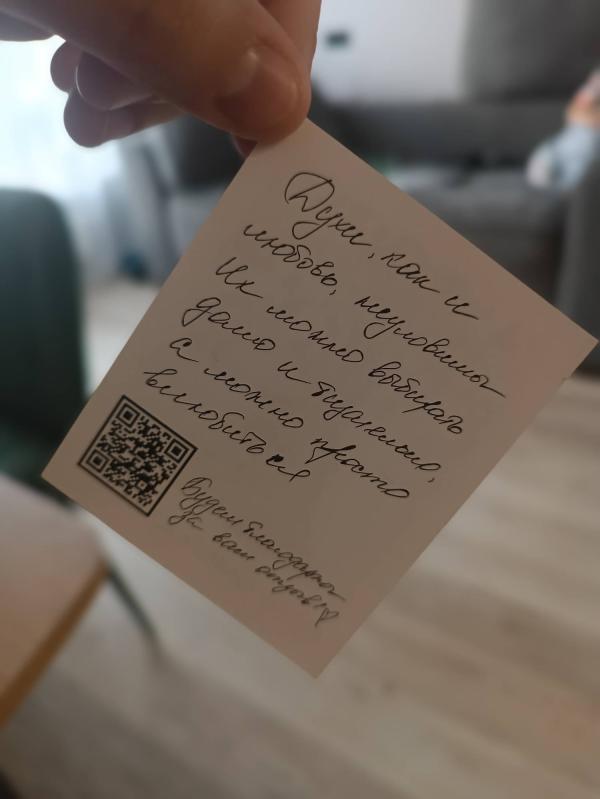 Духи, как и
любовь, неуловимы
Их можно выбирать
долго и тщательно,
а можно просто
влюбиться
Будем благодарны
за ваш отзыв!♡